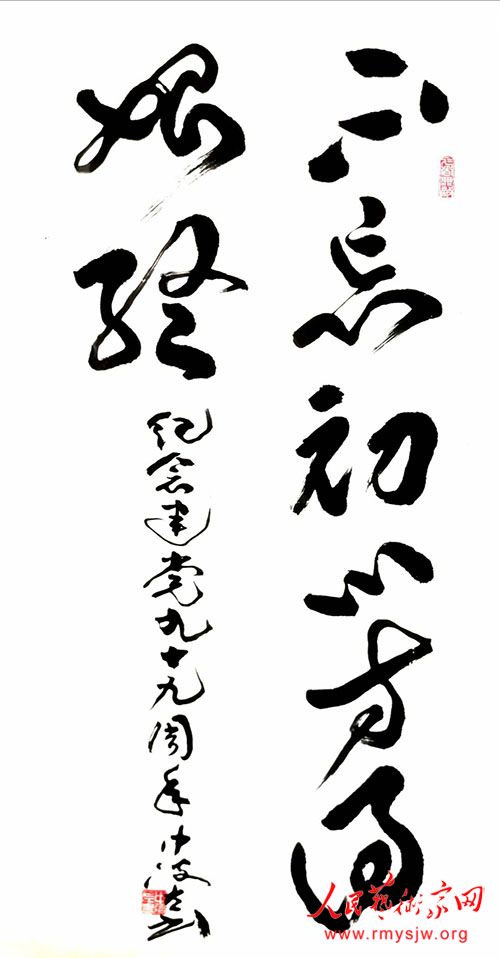 不忘初心方得
始终
纪念建党九十九周年
人民藝術家网
www.rmysjw.org